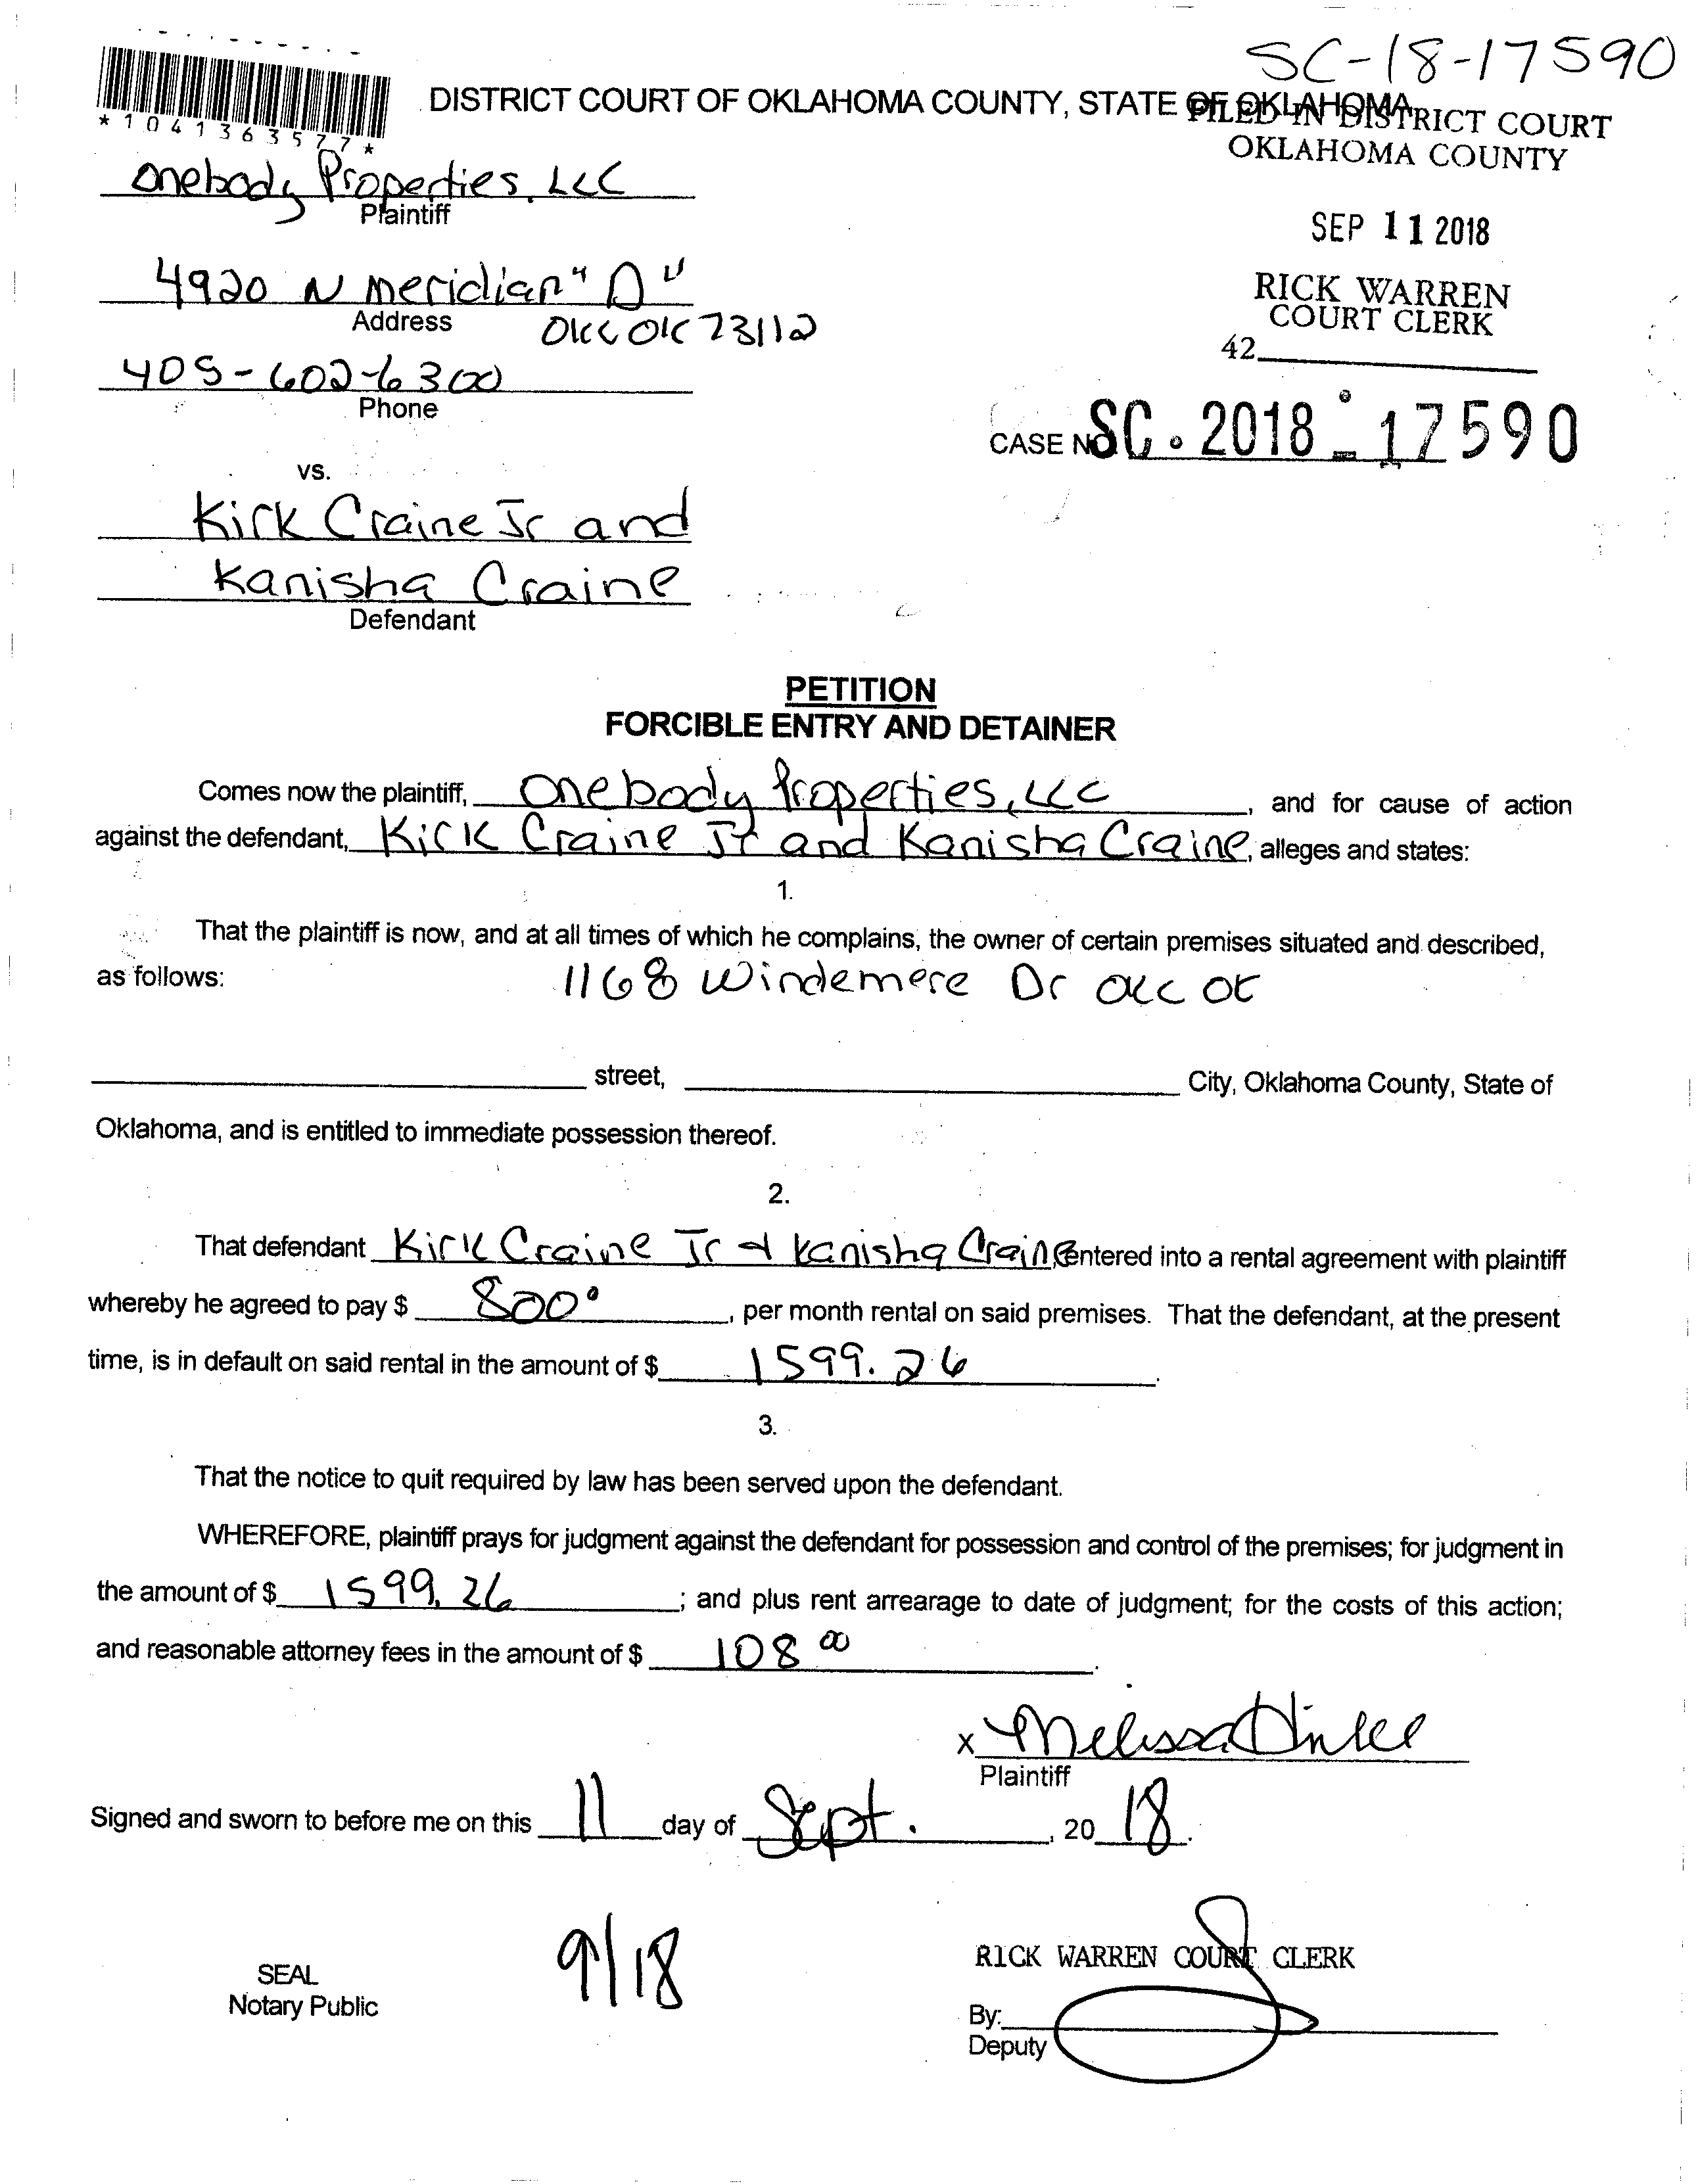 SC-18-17590
DISTRICT COURT OF OKLAHOMA COUNTY, STATE OF OKLAHOMA
FILED IN DISTRICT COURT
OKLAHOMA COUNTY
*1041363577*
Onebody Properties, LLC
Plaintiff
SEP 11 2018
4920 N Meridian "D"
Address
OKC OK 73112
RICK WARREN
COURT CLERK
42
405-602-6300
Phone
CASE NO. SC-2018-17590
vs.
Kirk Craine Jr and
Kanisha Craine
Defendant
PETITION
FORCIBLE ENTRY AND DETAINER
Comes now the plaintiff, Onebody Properties, LLC, and for cause of action
against the defendant, Kirk Craine Jr and Kanisha Craine, alleges and states:
1.
That the plaintiff is now, and at all times of which he complains, the owner of certain premises situated and described,
as follows: 1168 Windemere Dr OKC OK
street, City, Oklahoma County, State of
Oklahoma, and is entitled to immediate possession thereof.
2.
That defendant Kirk Craine Jr & Kanisha Craine entered into a rental agreement with plaintiff
whereby he agreed to pay $ 800°, per month rental on said premises. That the defendant, at the present
time, is in default on said rental in the amount of $ 1599.26.
3.
That the notice to quit required by law has been served upon the defendant.
WHEREFORE, plaintiff prays for judgment against the defendant for possession and control of the premises; for judgment in
the amount of $ 1599.26; and plus rent arrearage to date of judgment; for the costs of this action;
and reasonable attorney fees in the amount of $ 108 00.
x Melissa
Plaintiff
Signed and sworn to before me on this 11 day of Sept., 20 18.
9/18
SEAL
Notary Public
RICK WARREN COURT CLERK
By:
Deputy